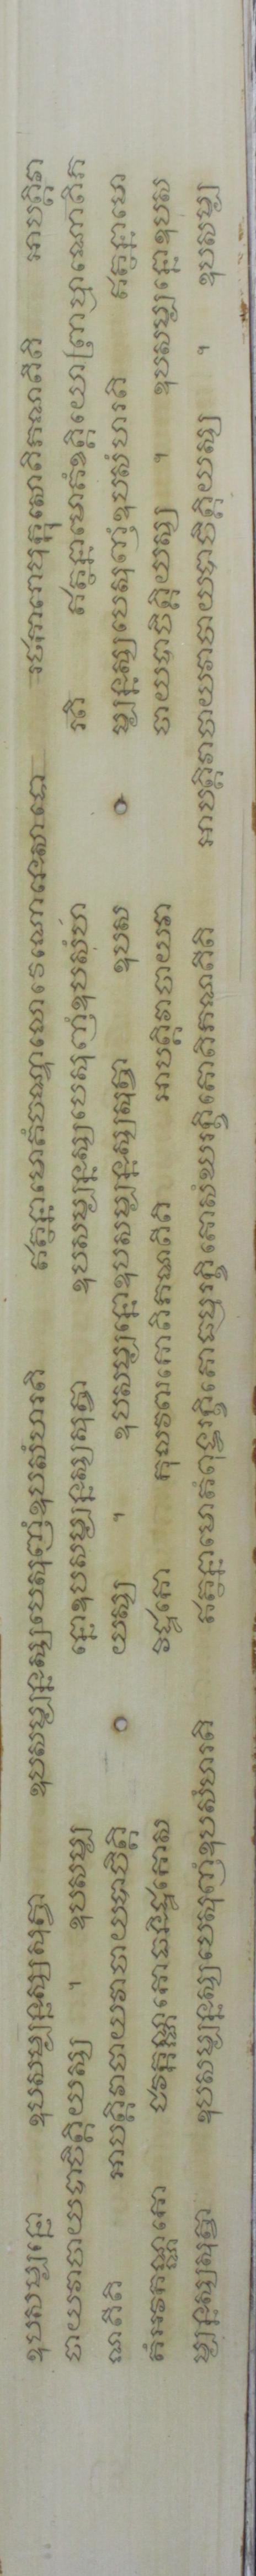 ឧបសម្បន្នោ ឧបសម្បន្នស្សសុត្វា ឧបសម្បន្នស្សបេសុញំឧបសំហរតិ ឥត្ថន្នាមេតំចណ្ឌាលោវេណោនេសាទោ រថការោបុក្កុសោតិភណតីតិ អាបត្តិវា
ចាយវាចាយបាចិត្តិយស្ស ។ ឧបសម្ប ន្នោឧបសម្បន្នស្សសុត្វា ឧបសម្បន្នស្សបេសុញំឧបសំហ រតិ ឥត្ថន្នាមេតំខត្តិយោព្រាហ្មណោតិភ
ណតីតិ អាបត្តិវាចាយវាចាយបាចិត្តិ យស្ស ។ ឧបសម្បន្នោឧបសម្បន្នស្សសុត្វា ឧបស ម្បន្នស្សបេសុញំឧបសំហរតិ ឥត្ថន្នាមេ
តំអវកណ្ណកោ ជវកណ្ណកោធនិដ្ឋកោស វិដ្ឋកោ កុលវឍកោតិភណតីតិ អាបត្តិវាចាយវា ចាយបាចិត្តិយស្ស ។ ឧបសម្បន្នោឧបស
ម្បន្នស្សសុត្វា ឧបសម្បន្នស្សបេសុញំឧបសំហរតិ ឥត្ថន្នាមេតំពុទ្ធរក្ខិតោធម្មរក្ខិតោសំឃរក្ខិតោតិភណតីតិ អាបត្តិវាចាយវាចាយបាចិត្តិយស្ស ។ ឧបសម្ប